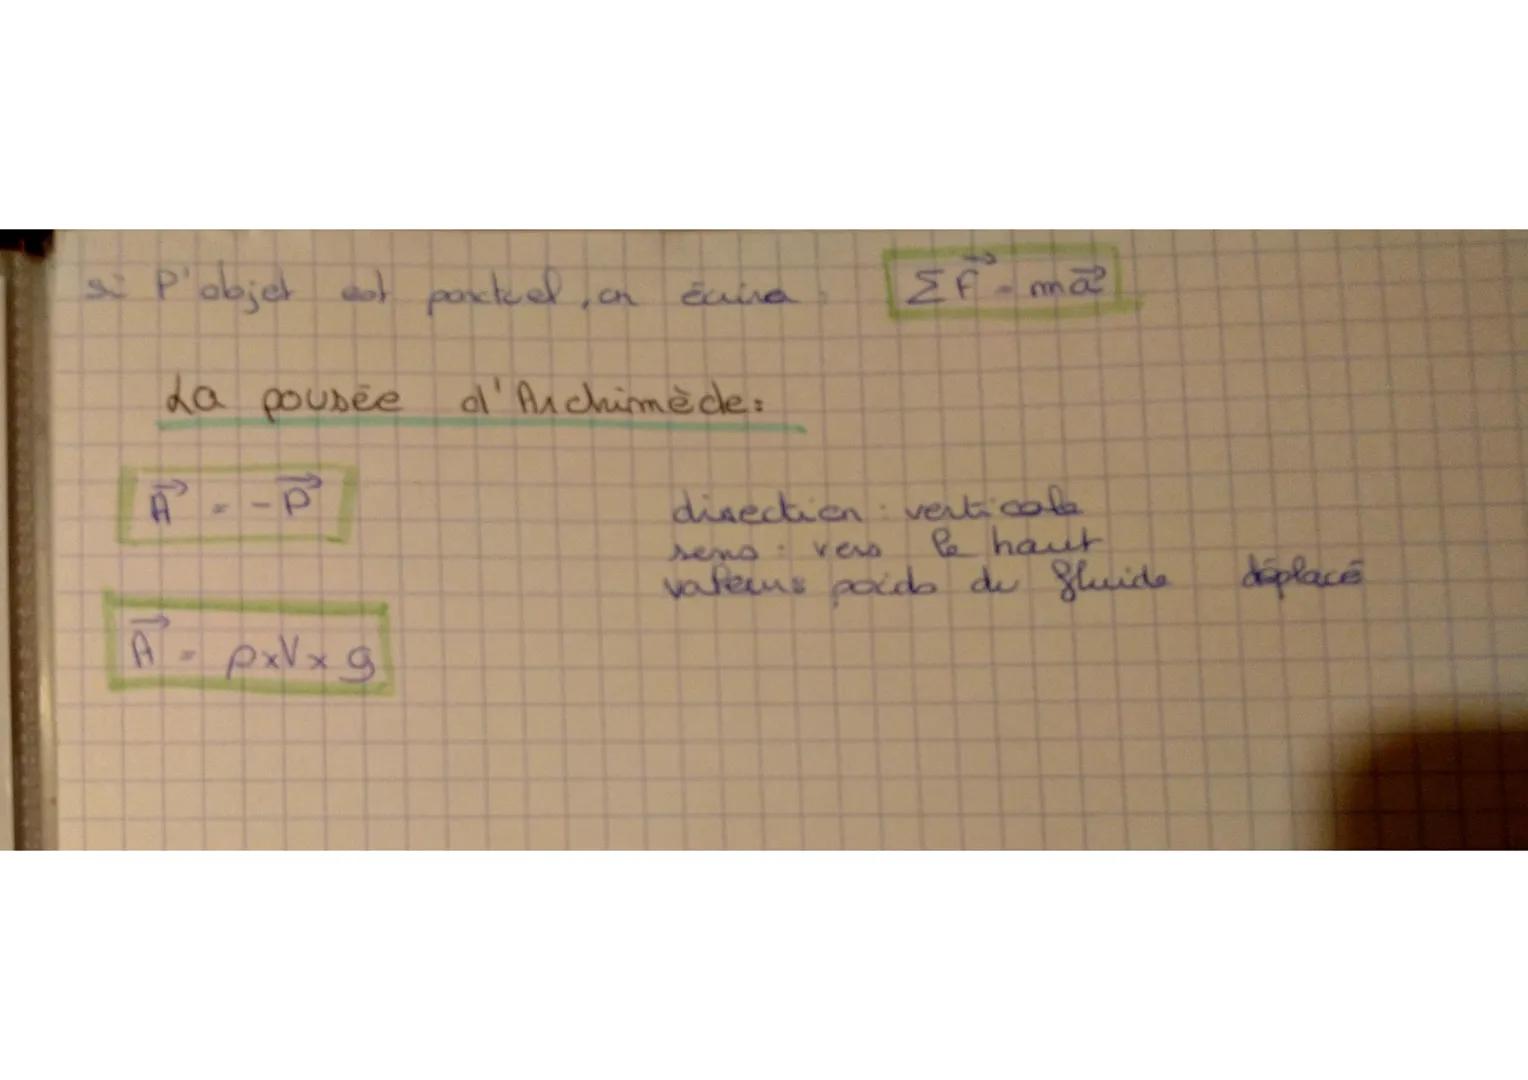 si l'objet est ponctuel, on écrira : Σ F⃗ = m a⃗
La pousée d'Archimède:
A⃗ = - P⃗
direction : verticale
sens : vers le haut
valeurs poids du fluide déplacé
A⃗ = ρ x V x g